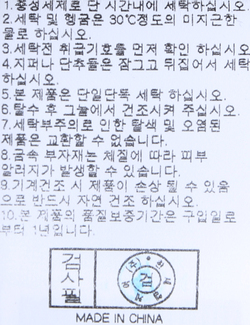 1.중성세제로 단 시간내에 세탁하십시오.
2.세탁 및 헹굼은 30℃정도의 미지근한
물로 하십시오.
3.세탁전 취급기호를 먼저 확인 하십시오
4.지퍼나 단추들은 잠그고 뒤집어서 세탁
하십시오.
5.본 제품은 단일단독 세탁 하십시오.
6.탈수 후 그늘에서 건조시켜 주십시오.
7.세탁부주의로 인한 탈색 및 오염된
제품은 교환할 수 없습니다.
8.금속 부자재는 체질에 따라 피부
알러지가 발생할 수 있습니다.
9.기계건조 시 제품이 손상 될 수 있음
으로 반드시 자연 건조 하십시오.
10.본 제품의 품질보증기간은 구입일로
부터 1년입니다.
검사필
(주)
검
MADE IN CHINA